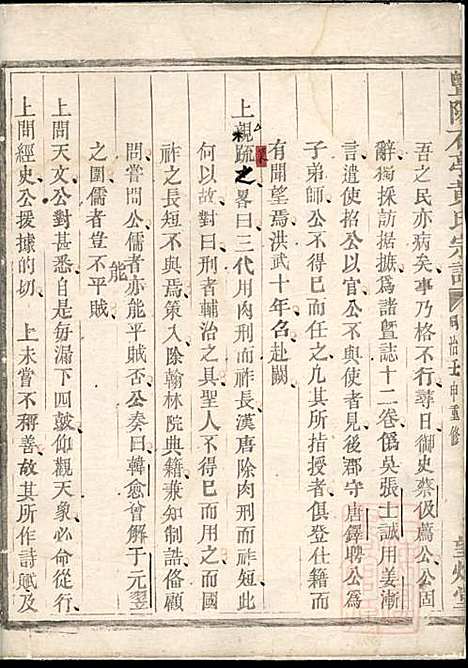 暨陽石亭黃氏宗譜 同治壬申重修
吾之民亦病矣事乃格不行尋日御史蔡伋薦公公固
辭獨採訪掂摭爲諸曁誌十二卷僞吳張士誠用姜漸
言遣使招公以官公不得使者見後郡守唐鐸聘公爲
子弟師公不得巳而任之凡其所指授者俱登仕籍而
有聞望焉洪武十年名赴闕
上親疏之畧曰三代用肉刑而祚長漢唐除肉刑而祚短此
何以故對曰刑者輔治之具聖人不得巳而用之而國
祚之長短不與焉策入除翰林院典籍兼知制誥俻顧
問嘗問公儒者亦能平賊否公奏曰韓愈曾解于元翌
之圍儒者豈不能平賊
上問天文公對甚悉自是每漏下四鼓仰觀天象必命從行
上問經史公援據的切 上未嘗不稱善故其所作詩賦及